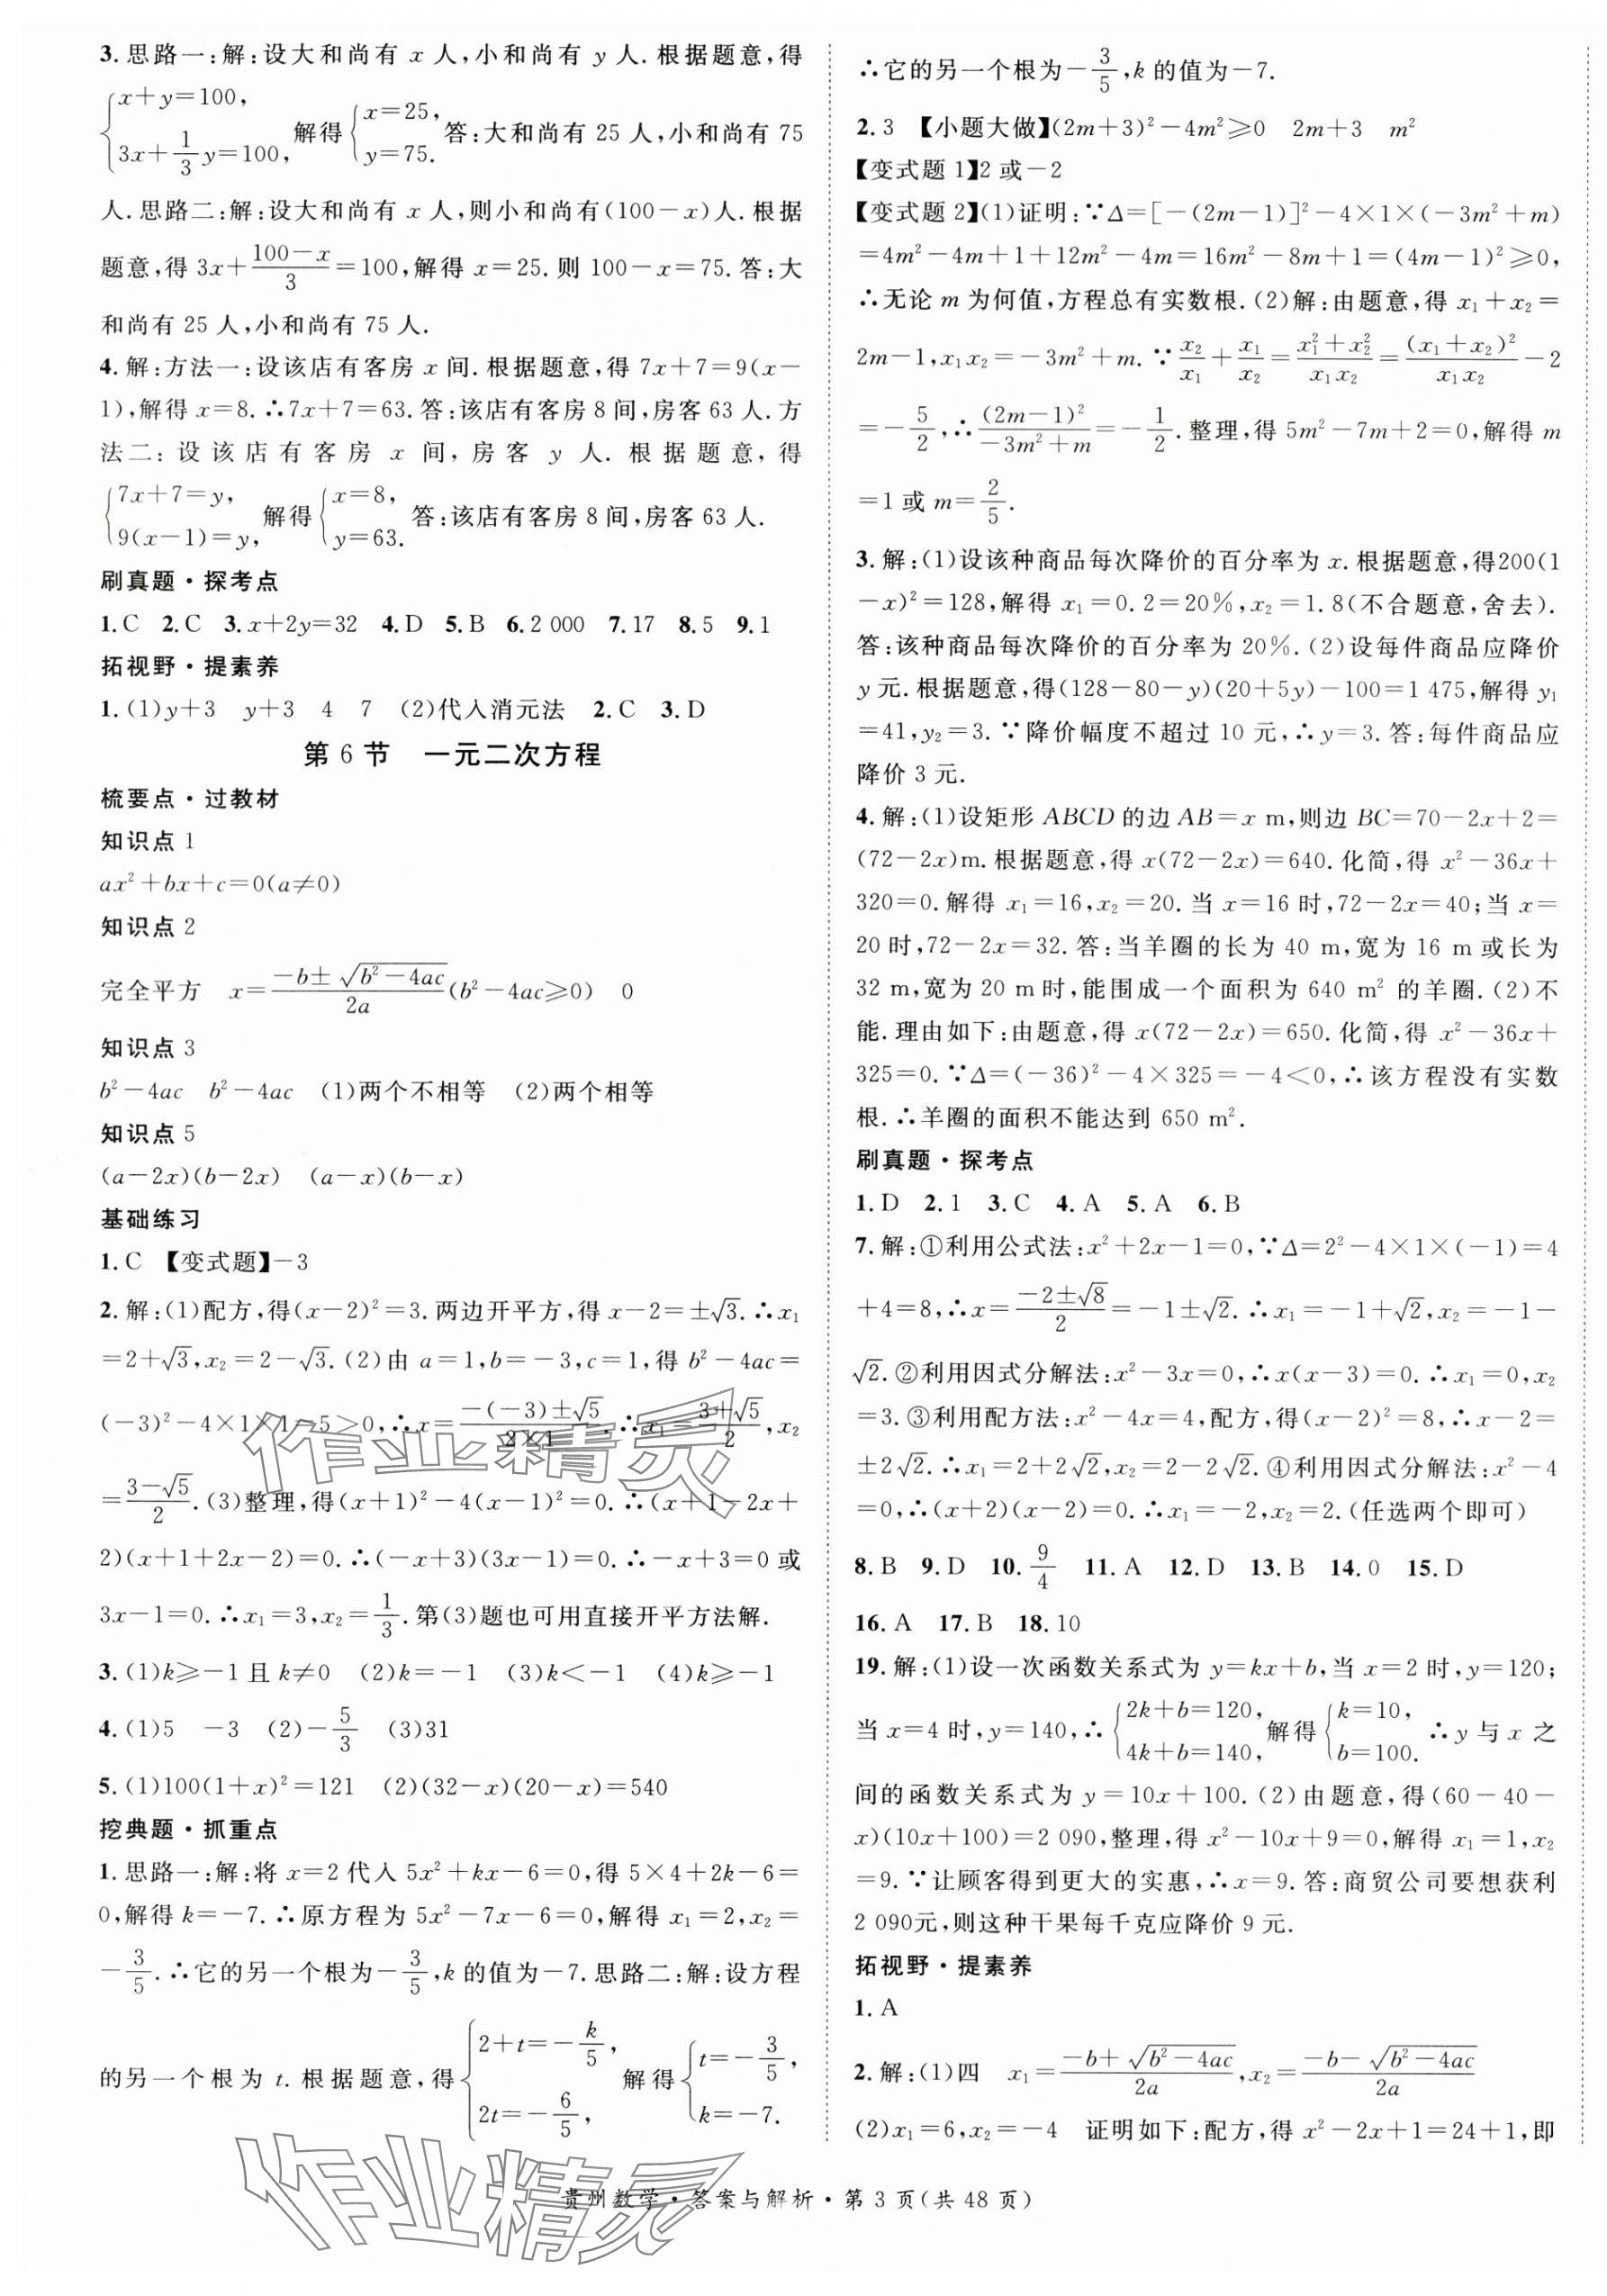 3.思路一:解:设大和尚有 x 人,小和尚有 y 人.根据题意,得
{x+y=100, 3x+1/3y=100, 解得{x=25, y=75. 答:大和尚有 25 人,小和尚有 75
人.思路二:解:设大和尚有 x 人,则小和尚有(100-x)人.根据
题意,得 3x+(100-x)/3=100,解得 x=25.则 100-x=75.答:大
和尚有 25 人,小和尚有 75 人.
4.解:方法一:设该店有客房 x 间.根据题意,得 7x+7=9(x-
1),解得 x=8.∴7x+7=63.答:该店有客房 8 间,房客 63 人.方
法二:设该店有客房 x 间,房客 y 人.根据题意,得
{7x+7=y, 9(x-1)=y, 解得{x=8, y=63. 答:该店有客房 8 间,房客 63 人.
刷真题·探考点
1.C 2.C 3.x+2y=32 4.D 5.B 6.2 000 7.17 8.5 9.1
拓视野·提素养
1.(1)y+3 y+3 4 7 (2)代入消元法 2.C 3.D
第 6 节 一元二次方程
梳要点·过教材
知识点 1
ax²+bx+c=0(a≠0)
知识点 2
完全平方 x=(-b±√(b²-4ac))/2a(b²-4ac≥0) 0
知识点 3
b²-4ac b²-4ac (1)两个不相等 (2)两个相等
知识点 5
(a-2x)(b-2x) (a-x)(b-x)
基础练习
1.C 【变式题】-3
2.解:(1)配方,得(x-2)²=3.两边开平方,得 x-2=±√3.∴x₁
=2+√3,x₂=2-√3.(2)由 a=1,b=-3,c=1,得 b²-4ac=
(-3)²-4×1×1=5>0,∴x=(-(-3)±√5)/(2×1).∴x₁=(3+√5)/2,x₂
=(3-√5)/2.(3)整理,得(x+1)²-4(x-1)²=0.∴(x+1-2x+
2)(x+1+2x-2)=0.∴(-x+3)(3x-1)=0.∴-x+3=0 或
3x-1=0.∴x₁=3,x₂=1/3.第(3)题也可用直接开平方法解.
3.(1)k≥-1 且 k≠0 (2)k=-1 (3)k<-1 (4)k≥-1
4.(1)5 -3 (2)-5/3 (3)31
5.(1)100(1+x)²=121 (2)(32-x)(20-x)=540
挖典题·抓重点
1.思路一:解:将 x=2 代入 5x²+kx-6=0,得 5×4+2k-6=
0,解得 k=-7.∴原方程为 5x²-7x-6=0,解得 x₁=2,x₂=
-3/5.∴它的另一个根为-3/5,k 的值为-7.思路二:解:设方程
的另一个根为 t.根据题意,得{2+t=-k/5, 2t=-6/5, 解得{t=-3/5, k=-7.
∴它的另一个根为-3/5,k 的值为-7.
2.3 【小题大做】(2m+3)²-4m²≥0 2m+3 m²
【变式题 1】2 或-2
【变式题 2】(1)证明:∵Δ=[-(2m-1)]²-4×1×(-3m²+m)
=4m²-4m+1+12m²-4m=16m²-8m+1=(4m-1)²≥0,
∴无论 m 为何值,方程总有实数根.(2)解:由题意,得 x₁+x₂=
2m-1,x₁x₂=-3m²+m.∵x₂/x₁+x₁/x₂=(x₁²+x₂²)/x₁x₂=(x₁+x₂)²/x₁x₂-2
=-5/2,∴(2m-1)²/(-3m²+m)=-1/2.整理,得 5m²-7m+2=0,解得 m
=1 或 m=2/5.
3.解:(1)设该种商品每次降价的百分率为 x.根据题意,得200(1
-x)²=128,解得 x₁=0.2=20%,x₂=1.8(不合题意,舍去).
答:该种商品每次降价的百分率为 20%.(2)设每件商品应降价
y 元.根据题意,得(128-80-y)(20+5y)-100=1 475,解得 y₁
=41,y₂=3.∵降价幅度不超过 10 元,∴y=3.答:每件商品应
降价 3 元.
4.解:(1)设矩形 ABCD 的边 AB=x m,则边 BC=70-2x+2=
(72-2x)m.根据题意,得 x(72-2x)=640.化简,得 x²-36x+
320=0.解得 x₁=16,x₂=20.当 x=16 时,72-2x=40;当 x=
20 时,72-2x=32.答:当羊圈的长为 40 m,宽为 16 m 或长为
32 m,宽为 20 m 时,能围成一个面积为 640 m² 的羊圈.(2)不
能.理由如下:由题意,得 x(72-2x)=650.化简,得 x²-36x+
325=0.∵Δ=(-36)²-4×325=-4<0,∴该方程没有实数
根.∴羊圈的面积不能达到 650 m².
刷真题·探考点
1.D 2.1 3.C 4.A 5.A 6.B
7.解:①利用公式法:x²+2x-1=0,∵Δ=2²-4×1×(-1)=4
+4=8,∴x=(-2±√8)/2=-1±√2.∴x₁=-1+√2,x₂=-1-
√2.②利用因式分解法:x²-3x=0,∴x(x-3)=0.∴x₁=0,x₂
=3.③利用配方法:x²-4x=4,配方,得(x-2)²=8,∴x-2=
±2√2.∴x₁=2+2√2,x₂=2-2√2.④利用因式分解法:x²-4
=0,∴(x+2)(x-2)=0.∴x₁=-2,x₂=2.(任选两个即可)
8.B 9.D 10.9/4 11.A 12.D 13.B 14.0 15.D
16.A 17.B 18.10
19.解:(1)设一次函数关系式为 y=kx+b,当 x=2 时,y=120;
当 x=4 时,y=140,∴{2k+b=120, 4k+b=140, 解得{k=10, b=100. ∴y 与 x 之
间的函数关系式为 y=10x+100.(2)由题意,得(60-40-
x)(10x+100)=2 090,整理,得 x²-10x+9=0,解得 x₁=1,x₂
=9.∵让顾客得到更大的实惠,∴x=9.答:商贸公司要想获利
2 090元,则这种干果每千克应降价 9 元.
拓视野·提素养
1.A
2.解:(1)四 x₁=(-b+√(b²-4ac))/2a,x₂=(-b-√(b²-4ac))/2a
(2)x₁=6,x₂=-4 证明如下:配方,得 x²-2x+1=24+1,即
贵州数学·答案与解析·第 3 页(共 48 页)
作业精灵
作业精灵